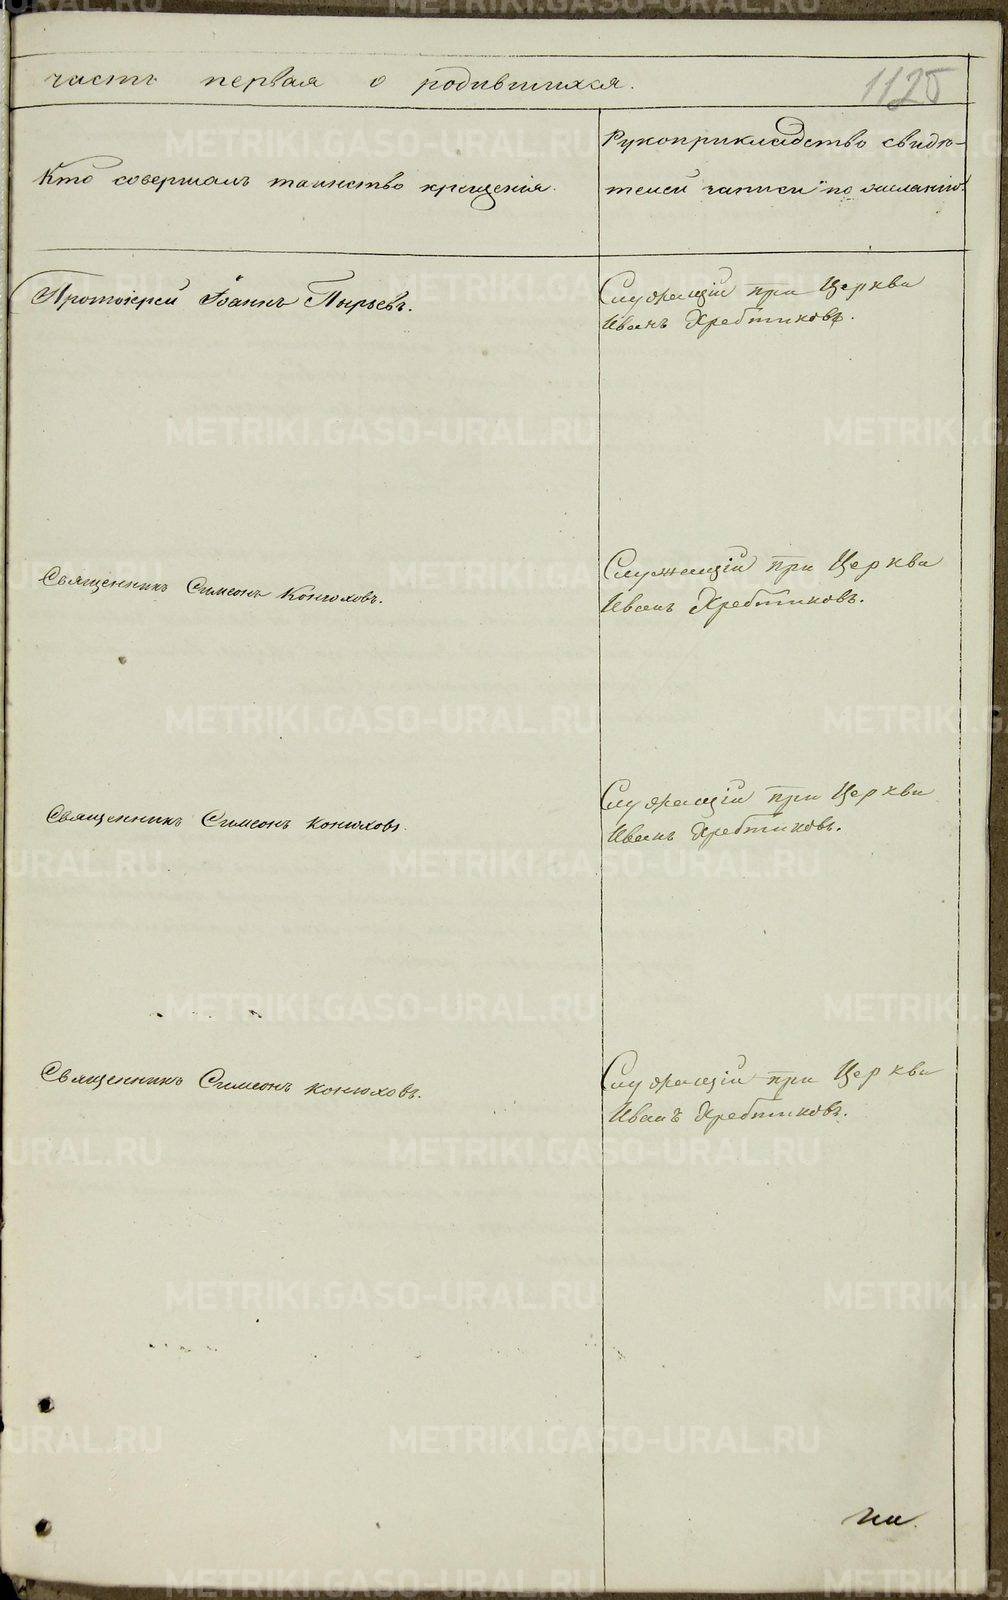 часть первая о родившихся.
1125
Кто совершалъ таинство крещенія.
Рукоприкладство свидѣ-
телей записи по желанію.
Протоіерей Іоаннъ Пырьевъ.
Служащій при Церкви
Иванъ Хребтиковъ.
Священникъ Симеонъ Конюховъ.
Служащій при Церкви
Иванъ Хребтиковъ.
Священникъ Симеонъ Конюховъ
Служащій при Церкви
Иванъ Хребтиковъ.
Священникъ Симеонъ Конюховъ.
Служащій при Церкви
Иванъ Хребтиковъ.
METRIKI.GASO-URAL.RU